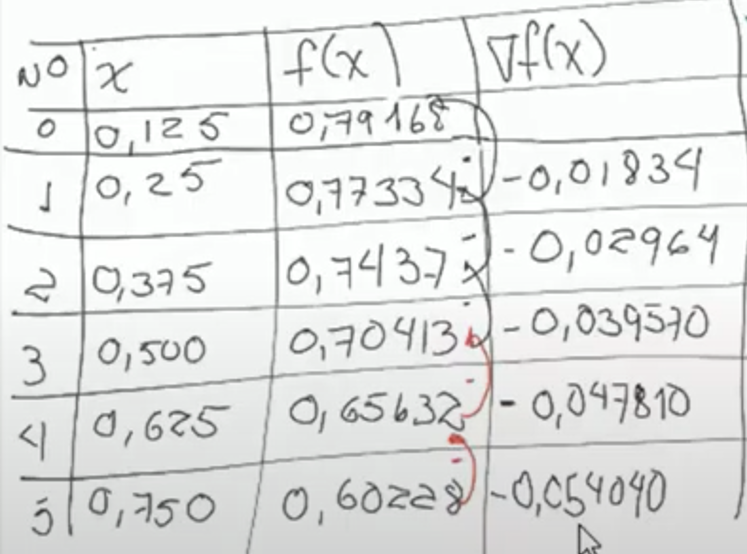 NO x f(x) ∇f(x)
0 0,125 0,79168
1 0,25 0,77334 -0,01834
2 0,375 0,7437 -0,02964
3 0,500 0,70413 -0,039570
4 0,625 0,65632 -0,047810
5 0,750 0,60228 -0,054040